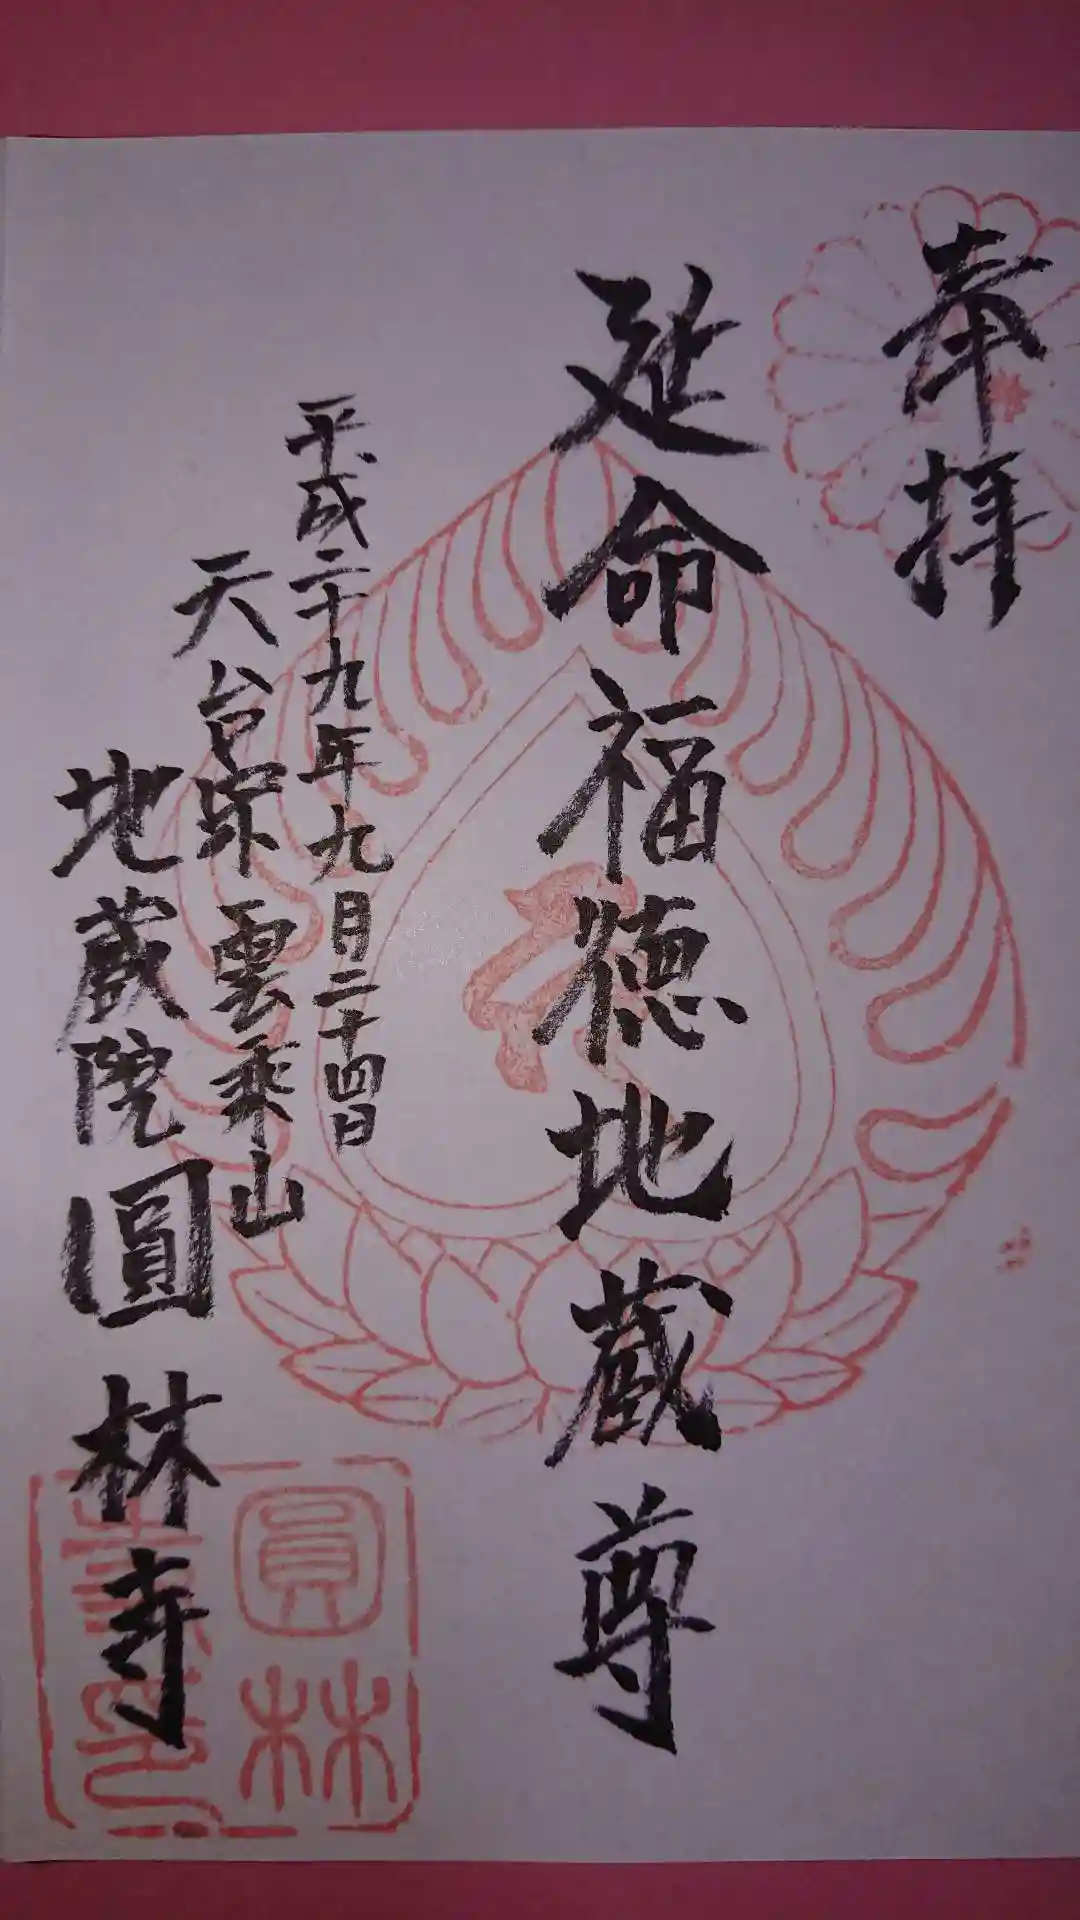 奉拝
延命福徳地蔵尊
平成二十九年九月二十四日
天台宗雲乘山
地蔵院圓林寺
圓林